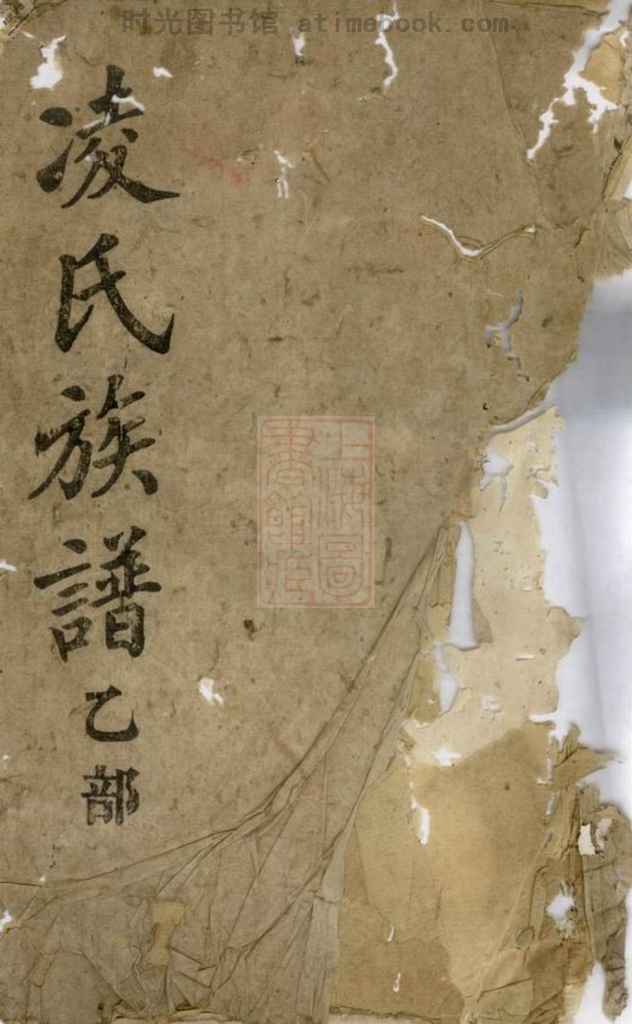 时光图书馆 atimebook.com
凌氏族譜乙部
上海圖書館藏